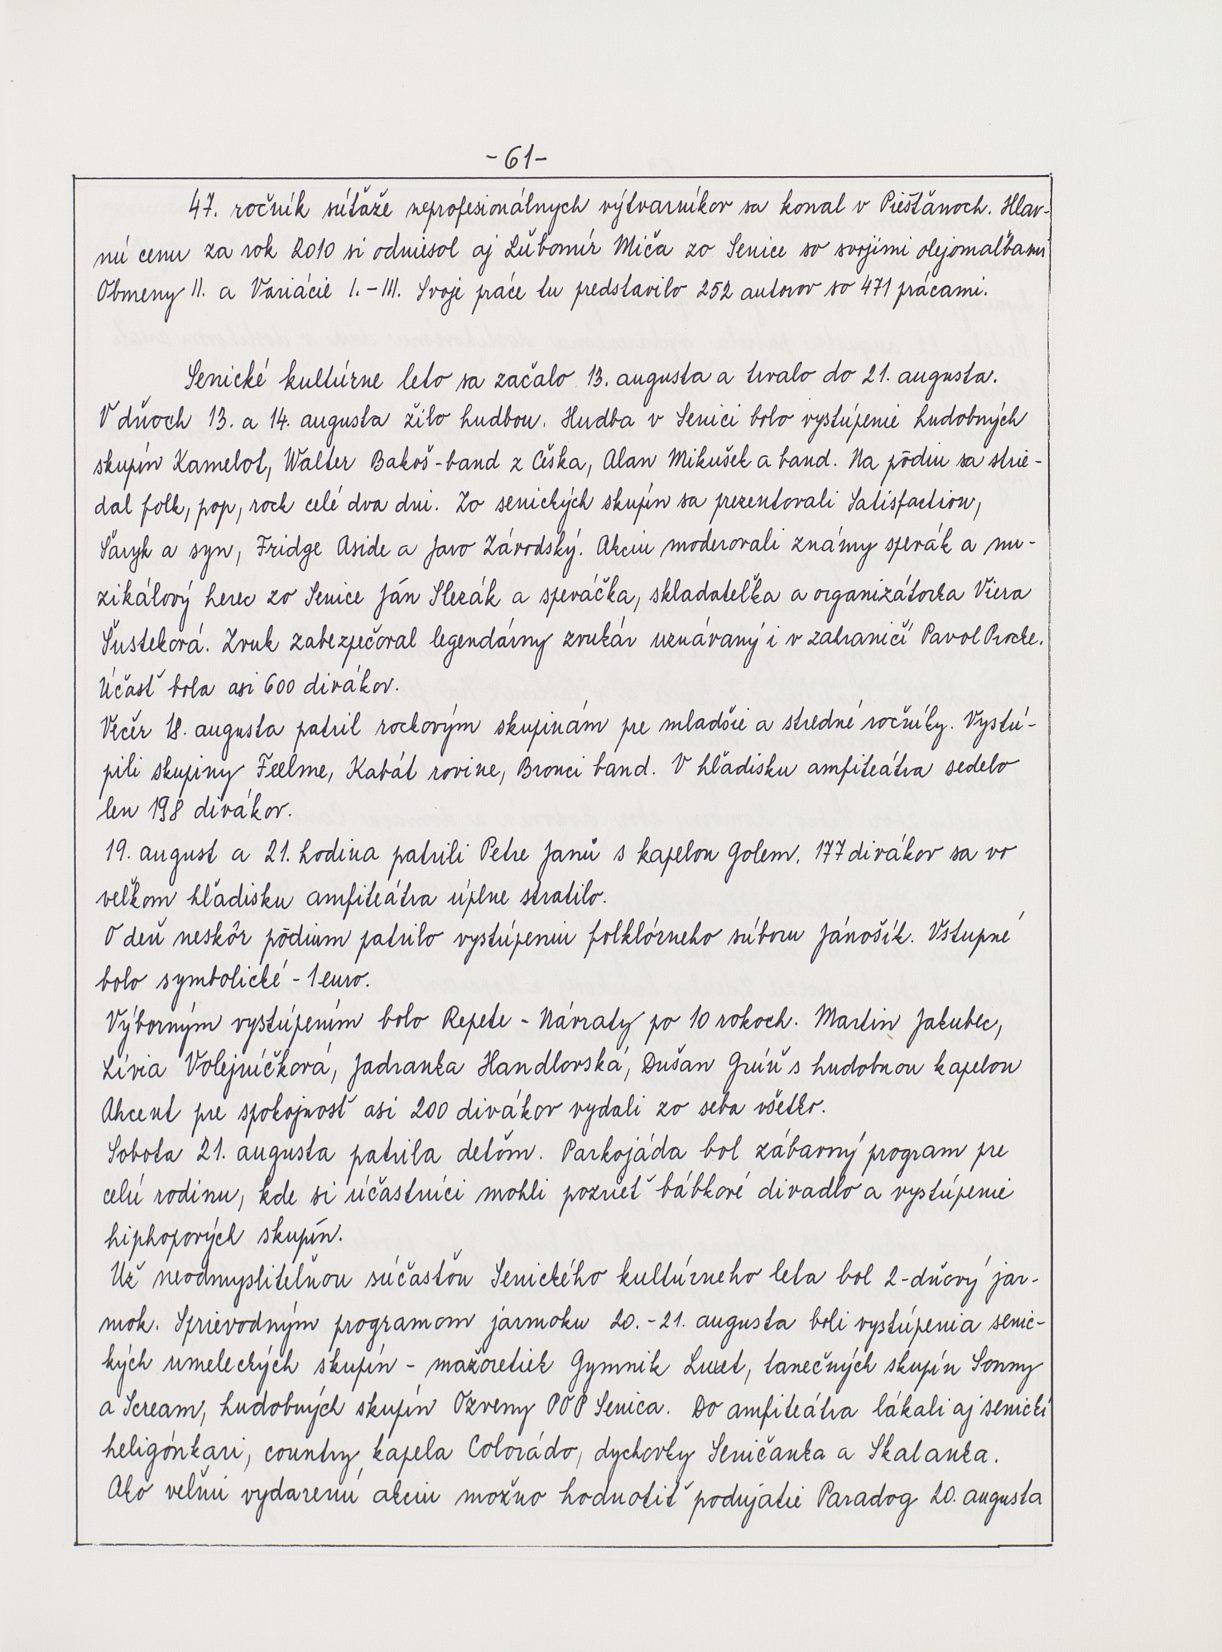 -61-
47. ročník súťaže neprofesionálnych výtvarníkov sa konal v Piešťanoch. Hlav-
nú cenu za rok 2010 si odniesol aj Ľubomír Miča zo Senice so svojimi olejomaľbami
Obmeny II. a Variácie I.-III. Svoje práce tu predstavilo 252 autorov so 471 prácami.
Senické kultúrne leto sa začalo 13. augusta a trvalo do 21. augusta.
V dňoch 13. a 14. augusta žilo hudbou. Hudba v Senici bolo vystúpenie hudobných
skupín Kamelot, Walter Bakoš-band z Čiška, Alan Mikušek a band. Na pódiu sa strie-
dal folk, pop, rock celé dva dni. Zo senických skupín sa prezentovali Satisfaction,
Šaryk a syn, Fridge Aside a Jaro Závodský. Akciu moderovali známy spevák a mu-
zikálový herec zo Senice Ján Slezák a speváčka, skladateľka a organizátorka Viera
Šusteková. Zvuk zabezpečoval legendárny zvukár uznávaný i v zahraničí Pavol Procke.
Účasť bola asi 600 divákov.
Večer 18. augusta patril rockovým skupinám pre mladšie a stredné ročníky. Vystú-
pili skupiny Feelme, Kabát rovine, Bronci band. V hľadisku amfiteátra sedelo
len 198 divákov.
19. august a 21. hodina patrili Petre Janů s kapelou Golem. 177 divákov sa vo
veľkom hľadisku amfiteátra úplne stratilo.
O deň neskôr pódium patrilo vystúpeniu folklórneho súboru Jánošík. Vstupné
bolo symbolické - 1 euro.
Výborným vystúpením bolo Repete - Návraty po 10 rokoch. Martin Jakubec,
Lívia Volejníčková, Jadranka Handlovská, Dušan Grúň s hudobnou kapelou
Akcent pre spokojnosť asi 200 divákov vydali zo seba všetko.
Sobota 21. augusta patrila deťom. Parkojáda bol zábavný program pre
celú rodinu, kde si účastníci mohli pozrieť bábkové divadlo a vystúpenie
hiphopových skupín.
Už neodmysliteľňou súčasťou Senického kultúrneho leta bol 2-dňový jar-
mok. Sprievodným programom jarmoku 20.-21. augusta boli vystúpenia senic-
kých umeleckých skupín - mažoretiek Gymnik Luset, tanečných skupín Sonny
a Scream, hudobných skupín Ozveny POP Senica. Do amfiteátra lákali aj senickí
heligónkari, country kapela Colorádo, dychovky Seničanka a Skalanka.
Ako veľmi vydarenú akciu možno hodnotiť podujatie Paradog 20. augusta